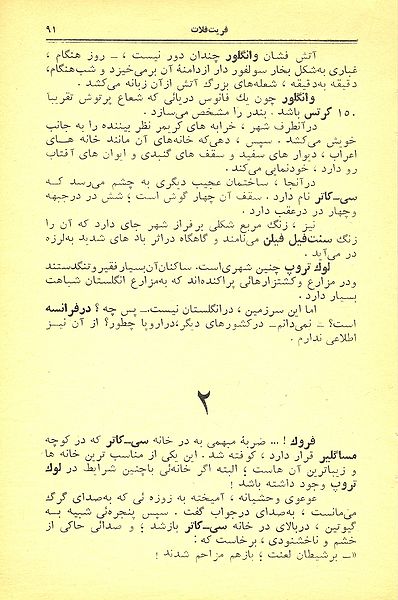 فریت‌فلات ۹۱
آتش فشان وانگلور چندان دور نیست ، ـ روز هنگام ،
غباری به‌شکل بخار سولفور دار ازدامنهٔ آن برمی‌خیزد و شب‌هنگام،
دقیقه به‌دقیقه ، شعله‌های بزرگ آتش ازآن زبانه می‌کشد .
وانگلور چون یك فانوس دریائی که شعاع پرتوش تقریبا
۱۵۰ کرتس باشد . بندر را مشخص می‌سازد .
درآنطرف شهر ، خرابه های کریمر نظر بیننده را به جانب
خویش می‌کشد . سپس ، دهی‌که خانه‌های آن مانند خانه هــای
اعراب ، دیوار های سفید و سقف های گنبدی و ایوان های آفتاب
رو دارد ، خودنمایی می‌کند .
درآنجا ، ساختمان عجیب دیگری به چشم می‌رسد کــه
سی‌ـ‌کاتر نام دارد . سقف آن چهار گوش است ؛ شش در‌درجبهه
وچهار در درعقب دارد .
نیز ، زنگ مربع شکلی برفراز شهر جای دارد که آن را
زنگ سنت‌فیل فیلن می‌نامند و گاهگاه دراثر باد های شدید به‌لرزه
در می‌آید .
لوك تروپ چنین شهری‌است. ساکنان‌آن‌بسیار‌فقیر‌و‌تنگدستند
ودر مزارع وکشتزارهائی پراکنده‌اند که به‌مزارع انگلستان شباهت
بسیار دارد .
اما این سرزمین ، درانگلستان نیست.ـ پس چه ؟ درفرانسه
است؟ ـ نمی‌دانم‌ـ درکشورهای دیگر،دراروپا چطور؟ از آن نیــز
اطلاعی ندارم .
۲
فروك ! ... ضربهٔ مبهمی به در خانه سی‌ـ‌کاتر که در کوچه
مساگلیر قرار دارد ، کوفته شد . این یکی از مناسب ترین خانه ها
و زیباترین آن هاست ؛ البته اگر خانه‌ئی باچنین شرایط در لوك
تروپ وجود داشته باشد !
عوعوی وحشیانه ، آمیخته به زوزه ئی که به‌صدای گرگ
می‌مانست ، به‌صدای درجواب گفت . سپس پنجره‌ئی شبیه بــه
گیوتین ، دربالای در خانه سی‌ـ‌کاتر بازشد ؛ و صدائی حاکی از
خشم و ناخشنودی ، برخاست که :
«ـ برشیطان لعنت ؛ بازهم مزاحم شدند !